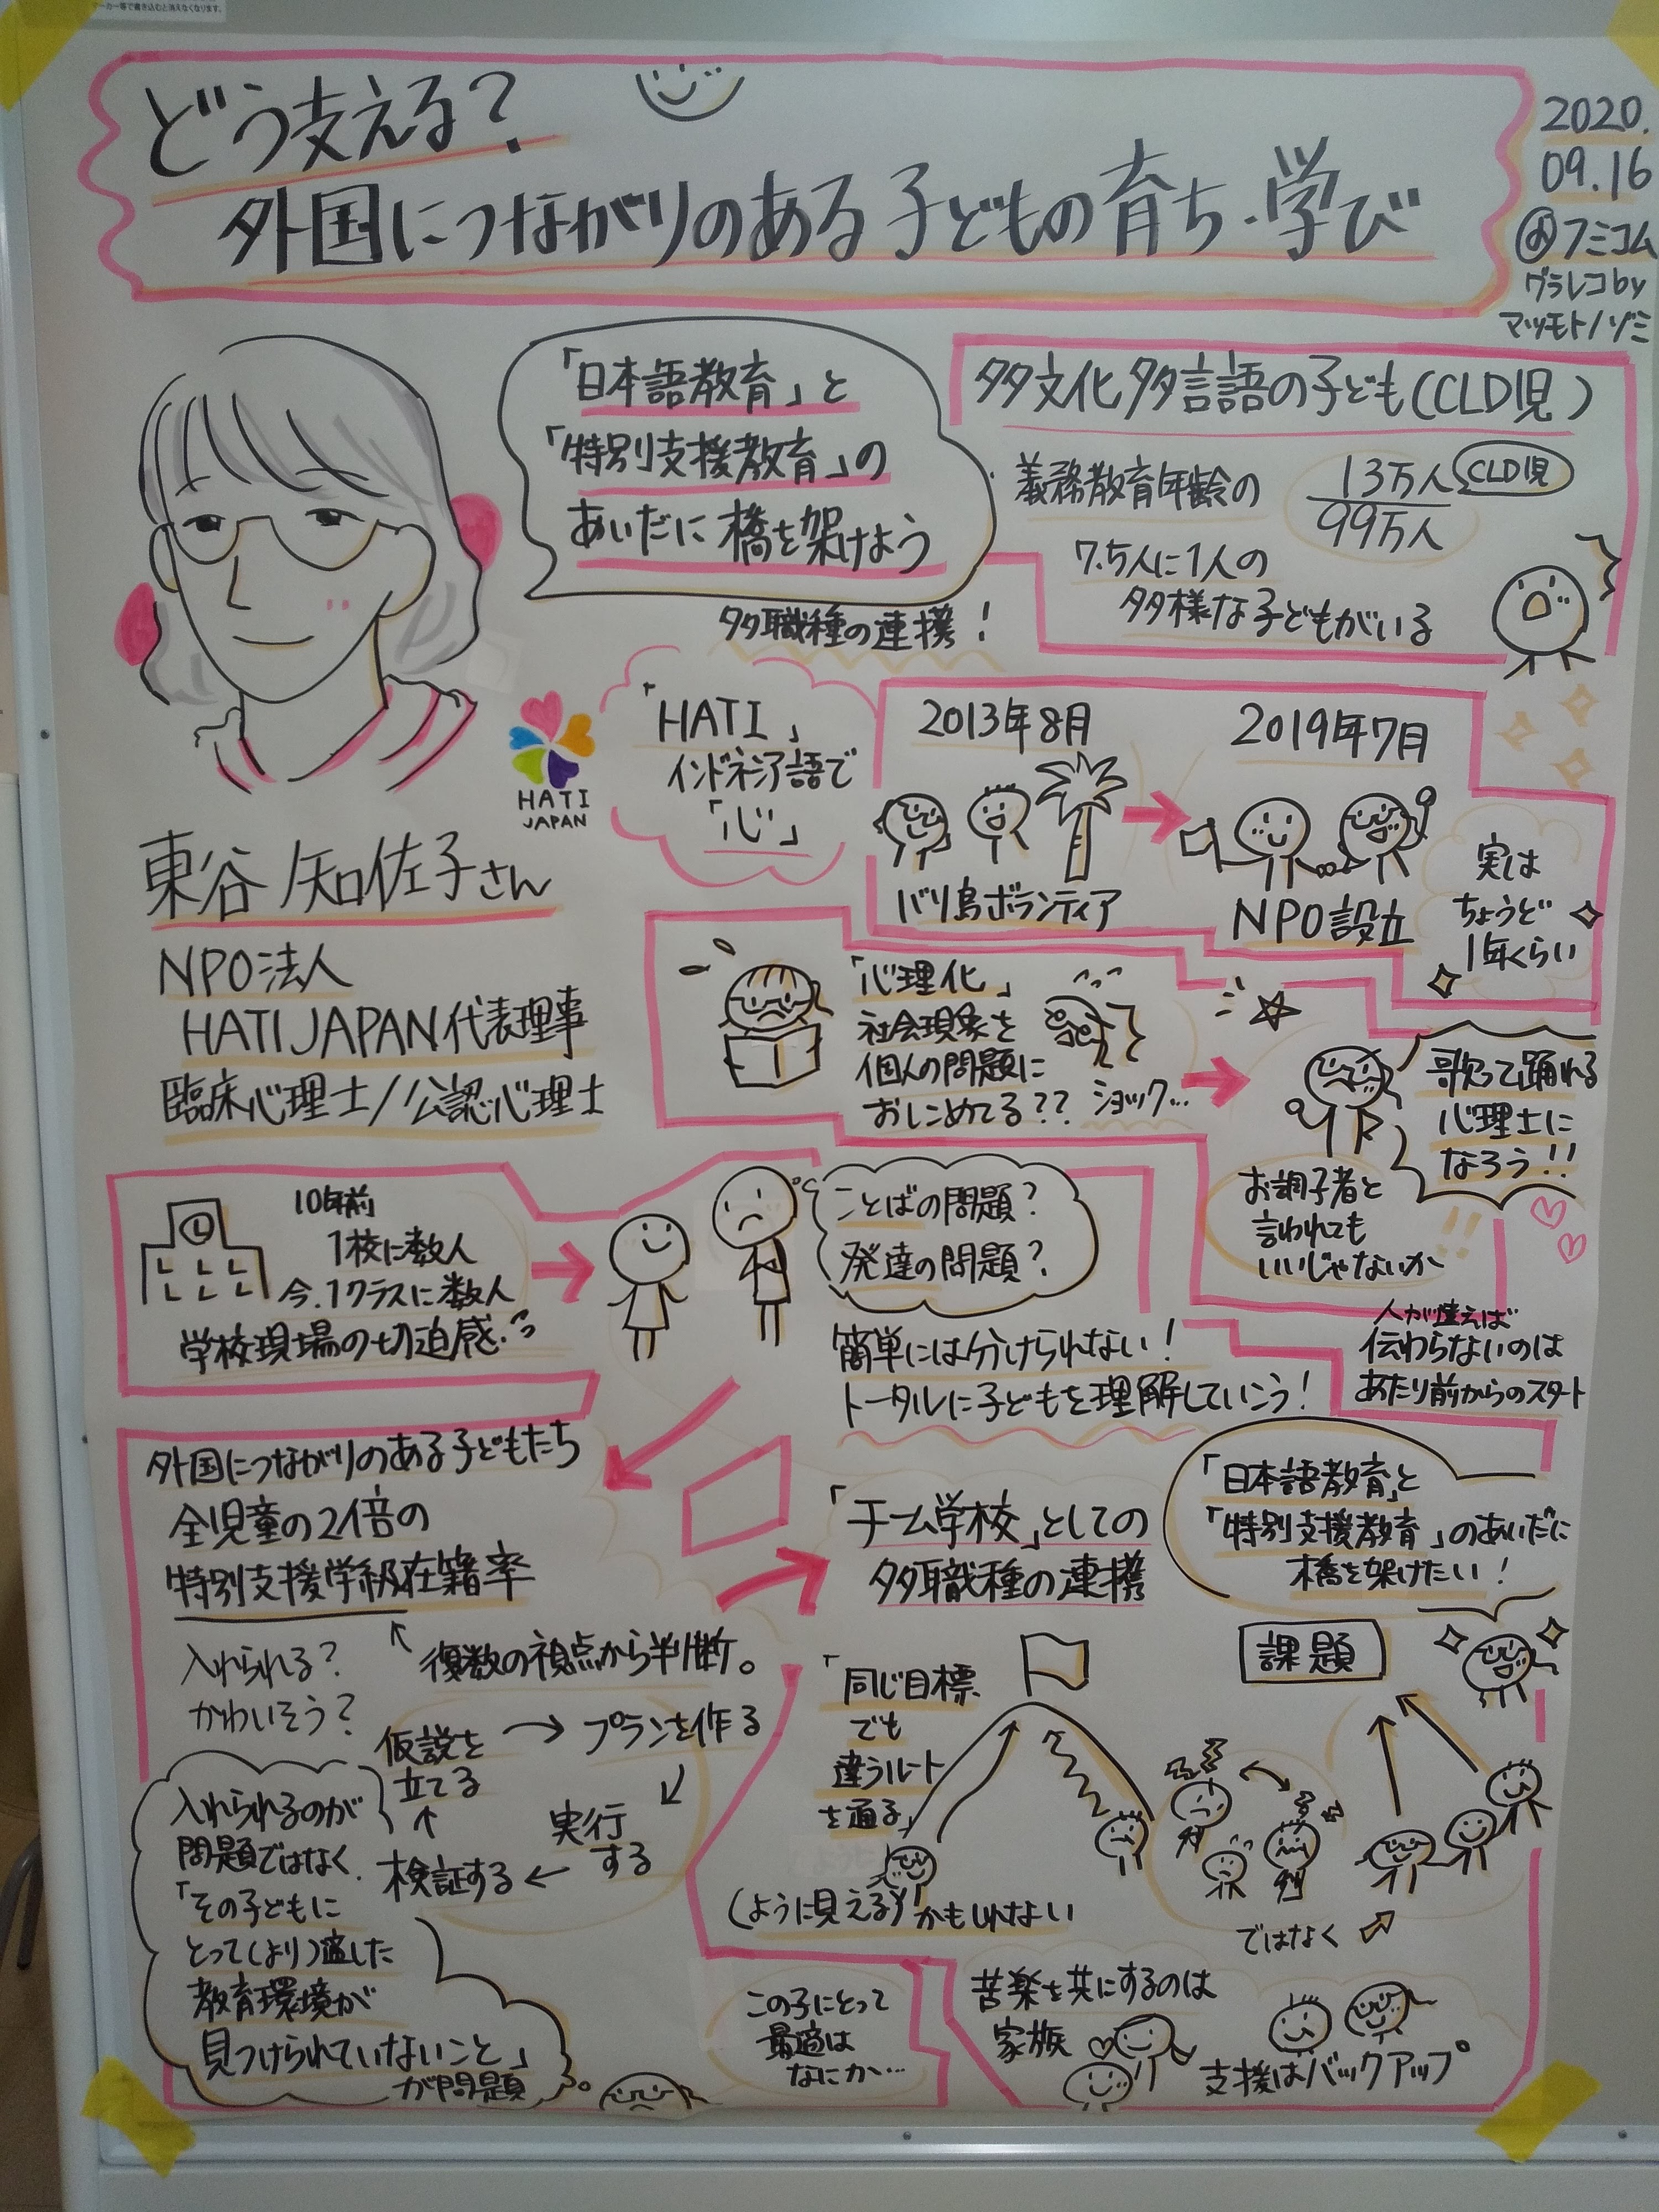 どう支える?
外国につながりのある子どもの育ち・学び
2020.
09.16
@フミコム
グラレコby
マツモトノゾミ
「日本語教育」と
「特別支援教育」の
あいだに橋を架けよう
多職種の連携!
多文化多言語の子ども(CLD児)
義務教育年齢の
13万人 CLD児
99万人
7.5人に1人の
多様な子どもがいる
HATI
JAPAN
「HATI」
インドネシア語で
「心」
2013年8月
バリ島ボランティア
2019年7月
NPO設立
実は
ちょうど
1年くらい
東谷知佐子さん
NPO法人
HATI JAPAN代表理事
臨床心理士/公認心理士
「心理化」
社会現象を
個人の問題に
おしこめてる??
ショック…
歌って踊れる
心理士に
なろう!!
お調子者と
言われても
いいじゃないか
!!
10年前
1校に数人
今、1クラスに数人
学校現場の切迫感
ことばの問題?
発達の問題?
簡単には分けられない!
トータルに子どもを理解していこう!
人が違えば
伝わらないのは
あたり前からのスタート
外国につながりのある子どもたち
全児童の2倍の
特別支援学級在籍率
入れられる?
かわいそう?
複数の視点から判断。
仮説を
立てる
プランを作る
実行
する
検証する
入れられるのが
問題ではなく
「その子どもに
とって(より)適した
教育環境が
見つけられていないこと」
が問題
「チーム学校」としての
多職種の連携
「日本語教育」と
「特別支援教育」のあいだに
橋を架けたい!
課題
「同じ目標
でも
違うルート
を通る」
(ように見える)かもしれない
ではなく
この子にとって
最適は
なにか…
苦楽を共にするのは
家族
支援はバックアップ